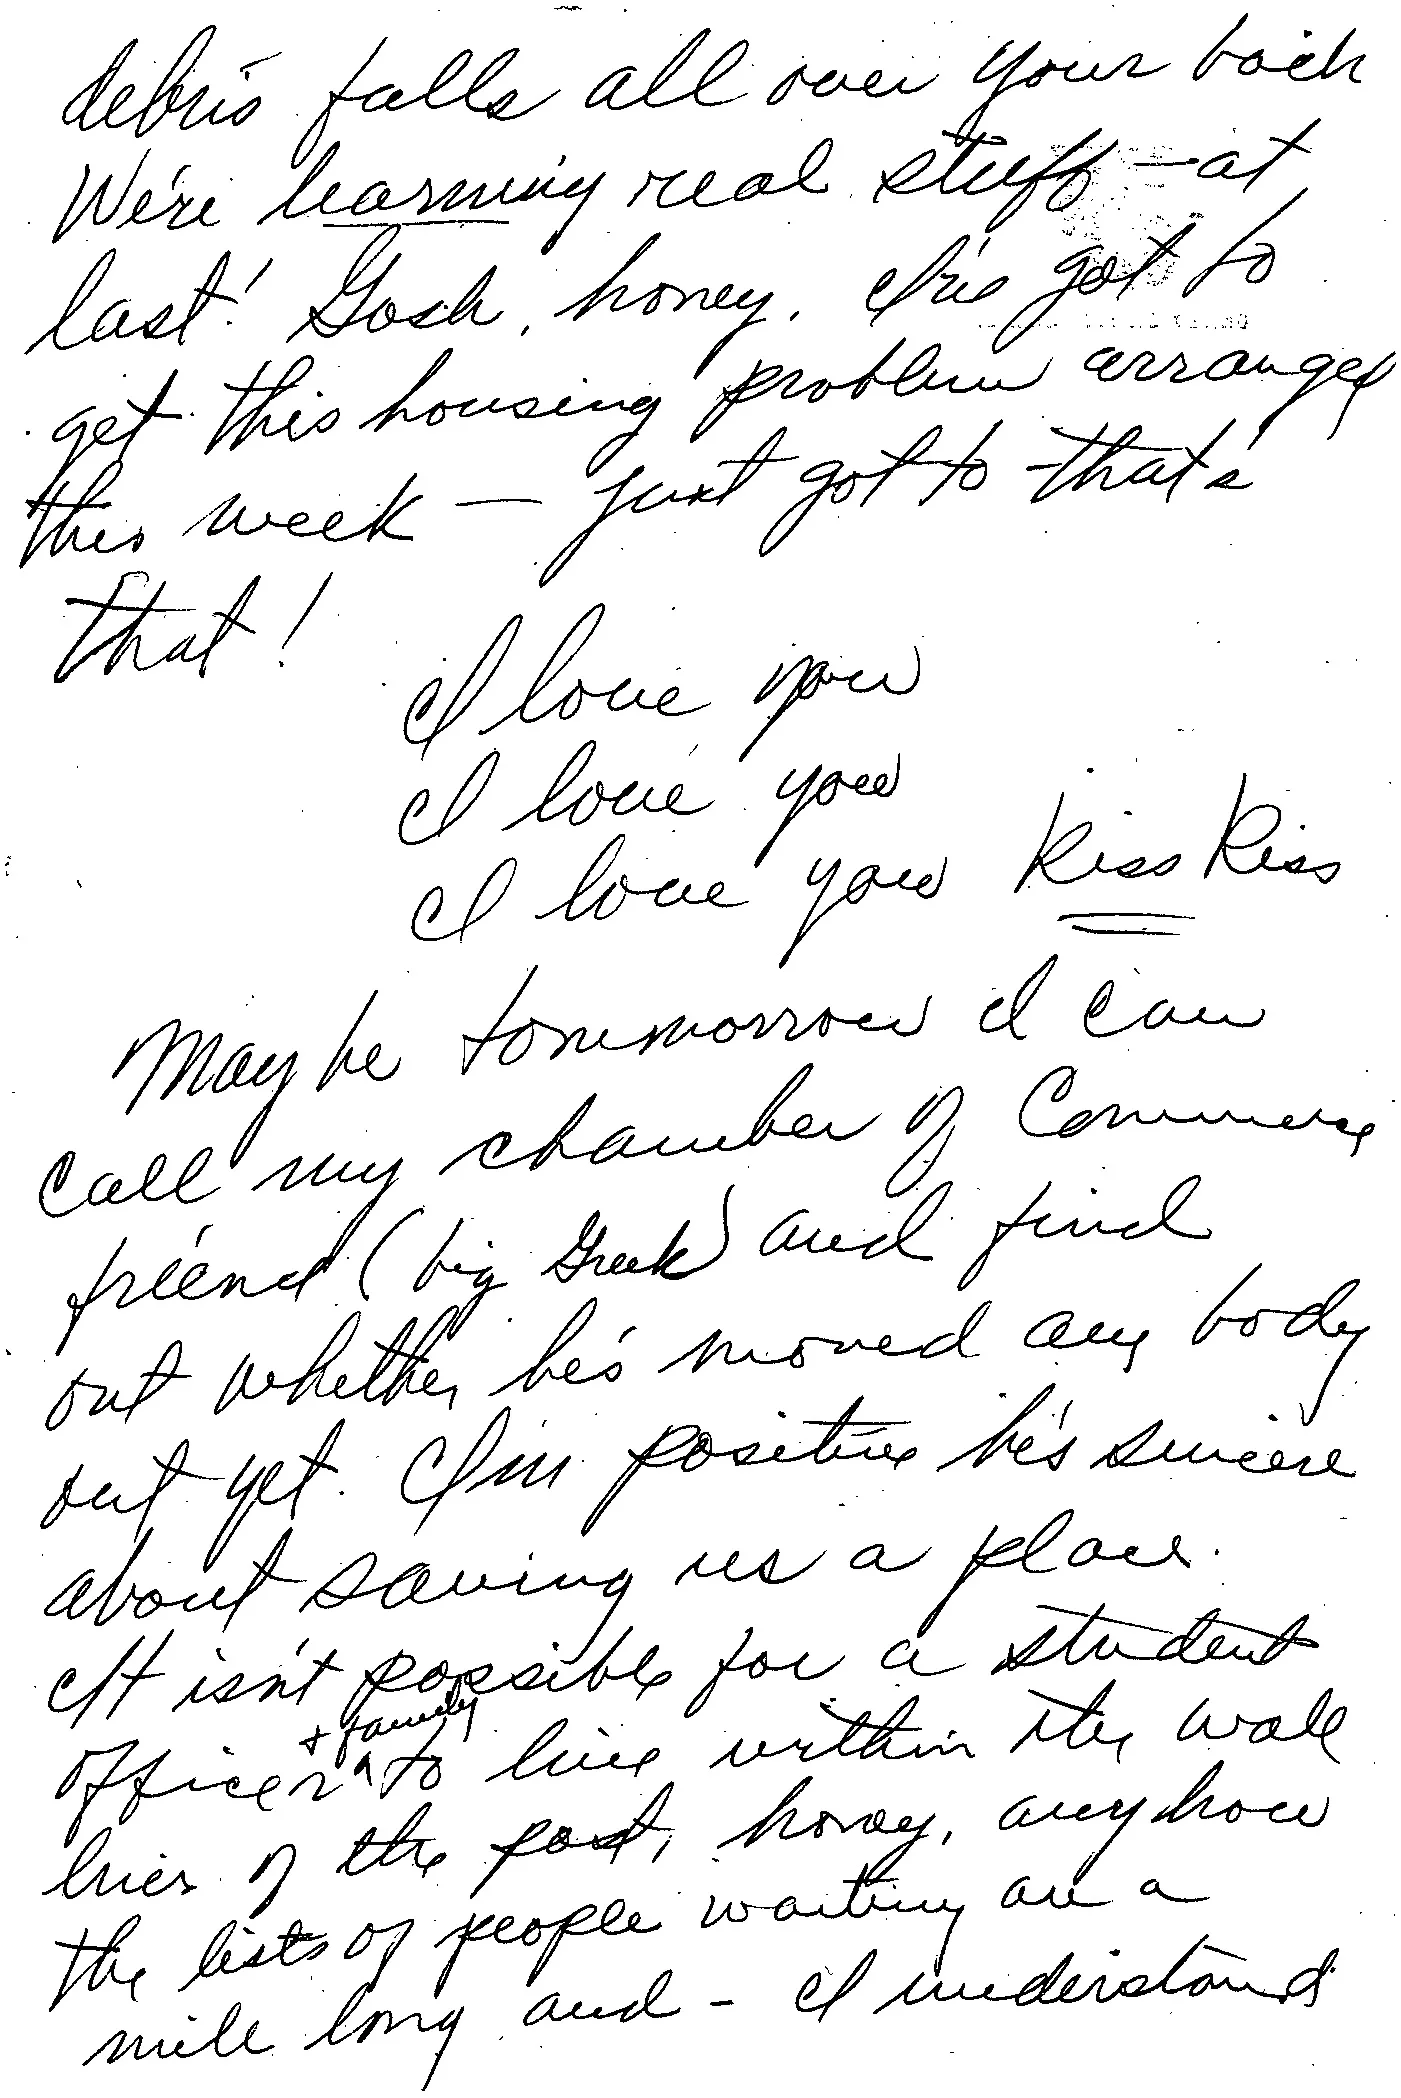 debris falls all over your back
We're learning real stuff - at
last! Gosh, honey, I've got to
get this housing problem arranged
this week — just got to - that's
that!
I love you
I love you
I love you Kiss Kiss
May be tommorrow I can
call my chamber of Commerce
friend (big Greek) and find
out whether he's moved any body
out yet. I'm positive he's sincere
about saving us a place.
It isn't possible for a student
officer + family to live within the wall
lines of the post, honey, anyhow
the lists of people waiting are a
mile long and - I understand